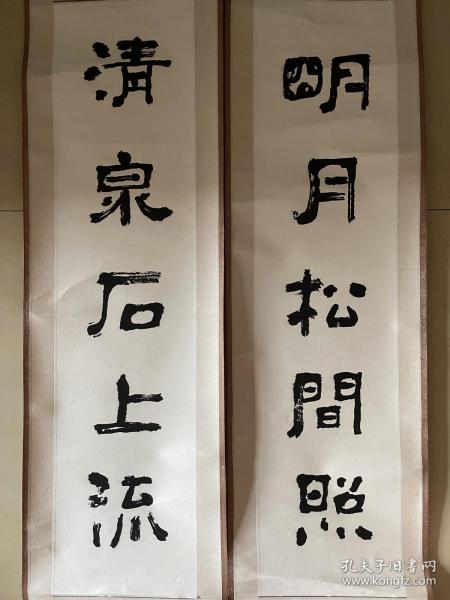 明月松間照
清泉石上流
孔夫子旧书网
www.kongfz.com